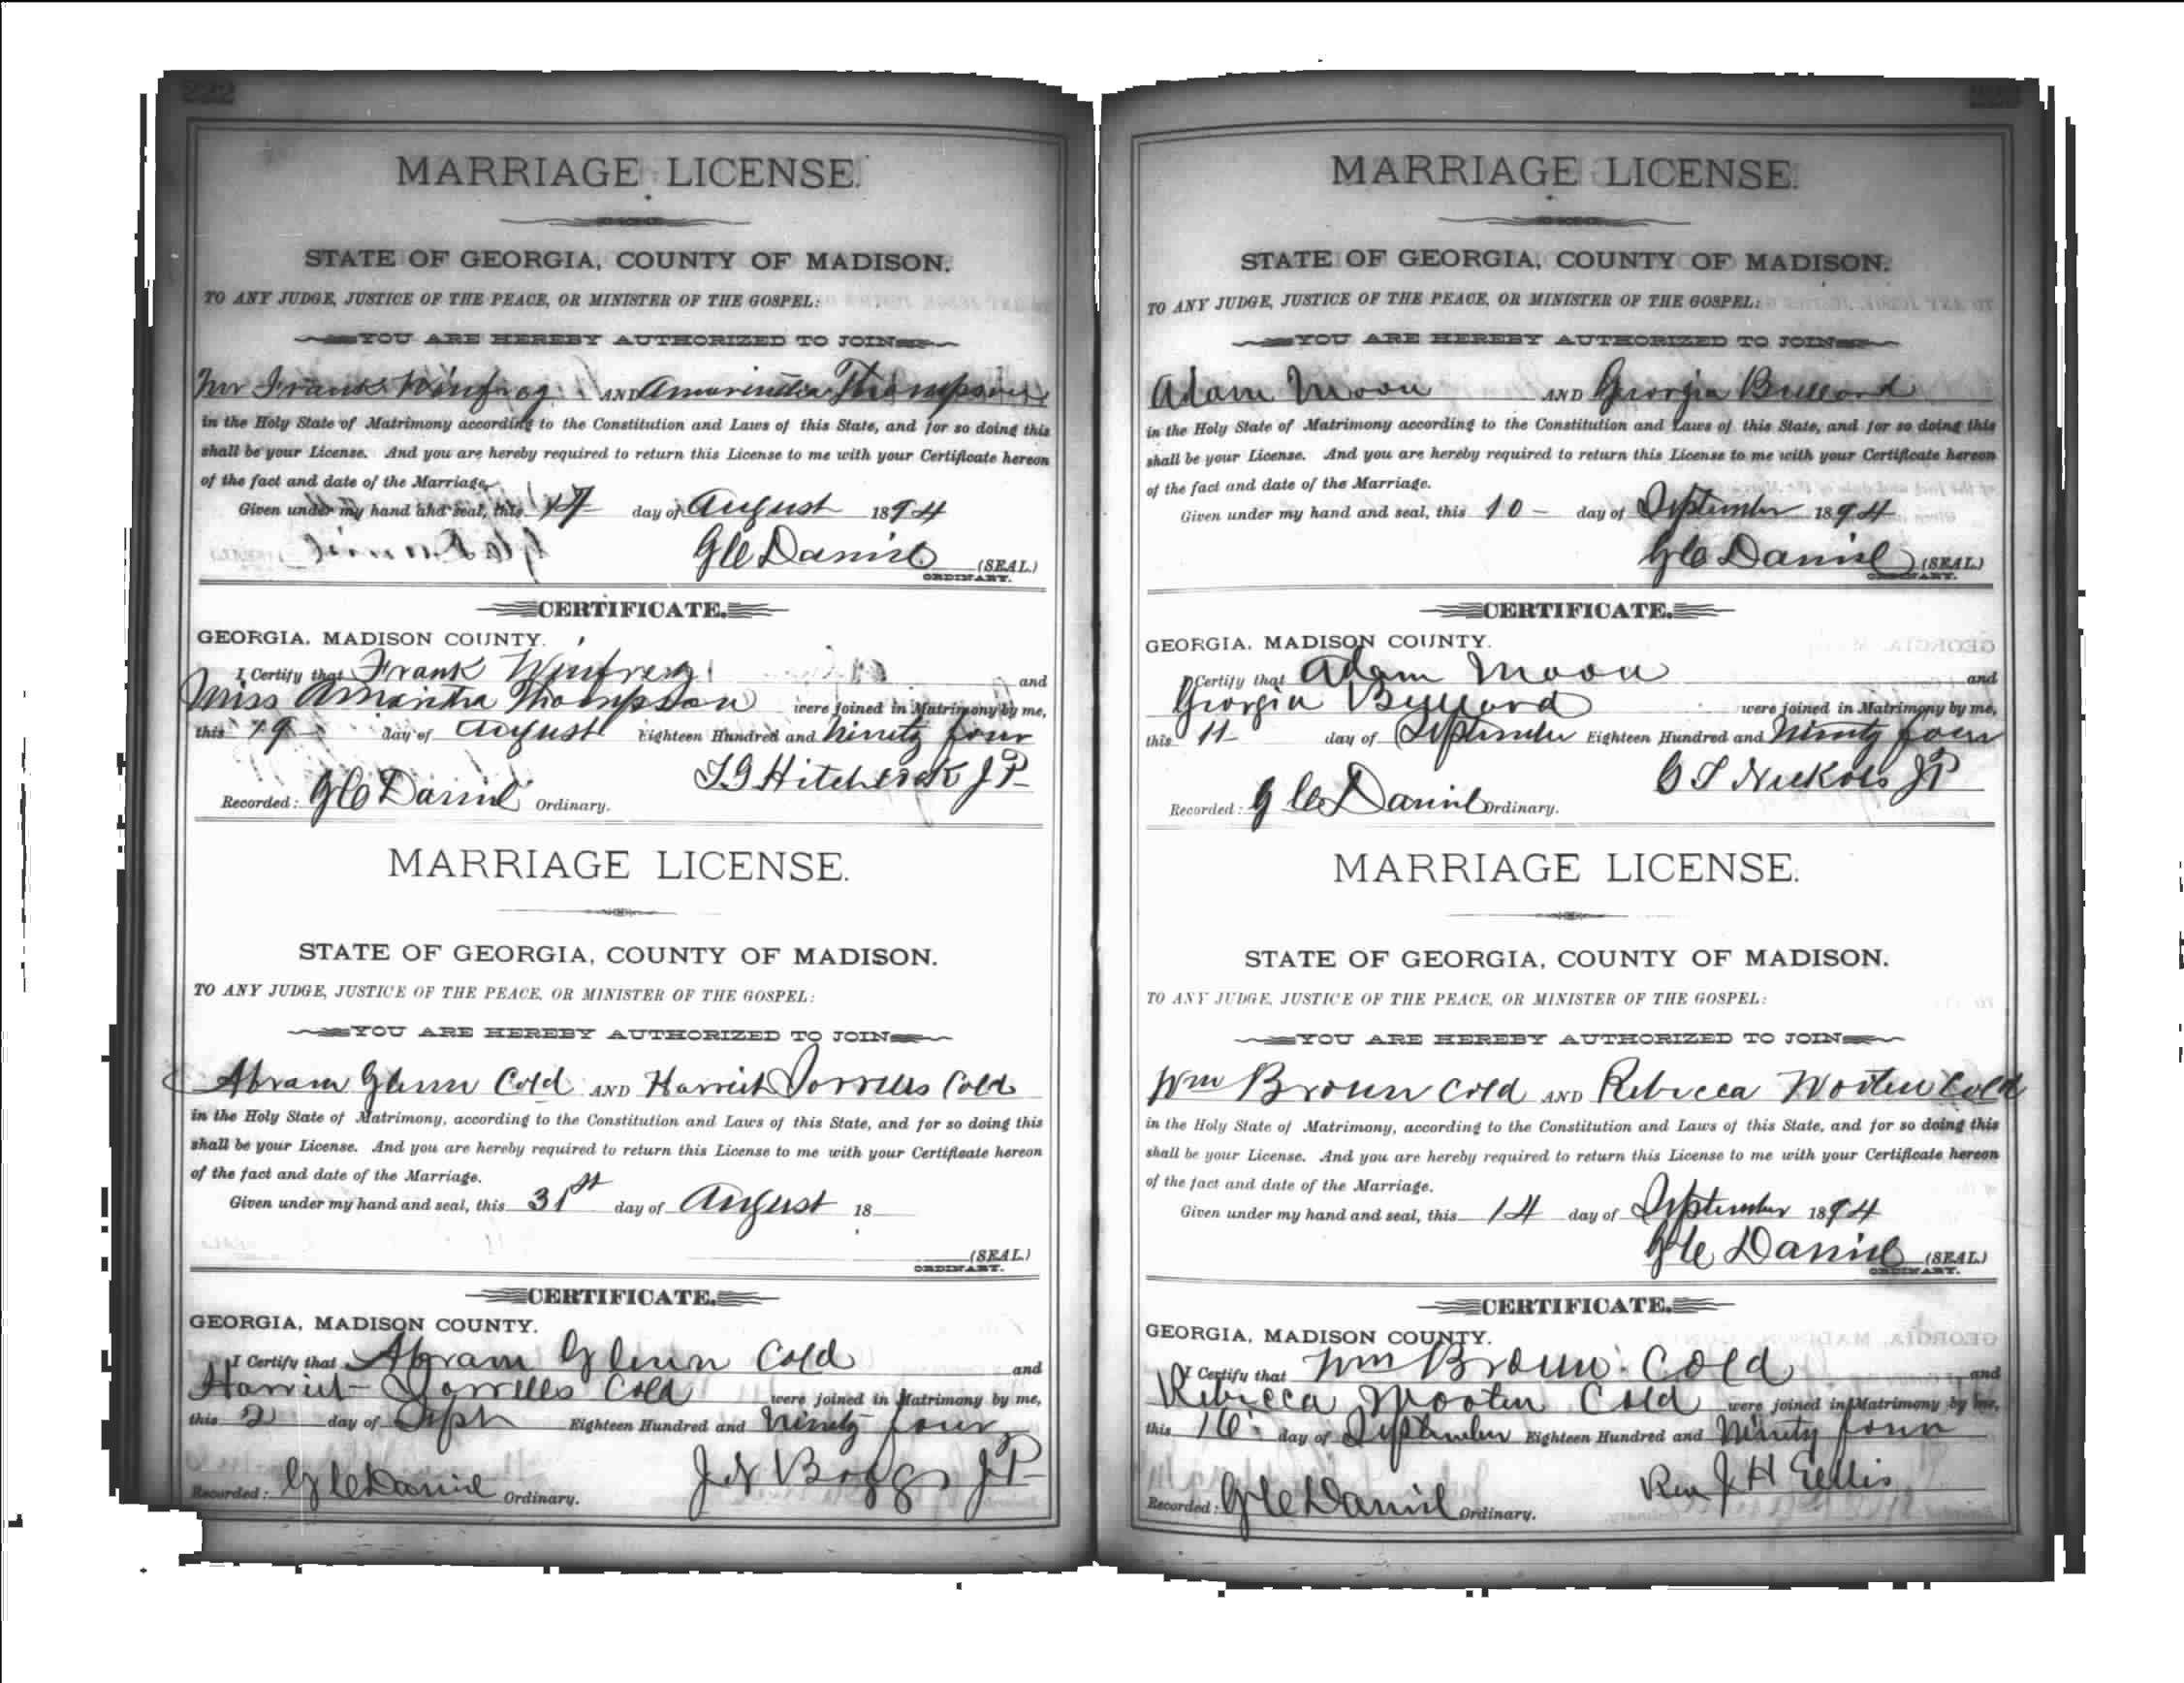 222
MARRIAGE LICENSE.
STATE OF GEORGIA, COUNTY OF MADISON.
TO ANY JUDGE, JUSTICE OF THE PEACE, OR MINISTER OF THE GOSPEL:
YOU ARE HEREBY AUTHORIZED TO JOIN
Mr Frank Winfrey AND Thompson
in the Holy State of Matrimony according to the Constitution and Laws of this State, and for so doing this
shall be your License. And you are hereby required to return this License to me with your Certificate hereon
of the fact and date of the Marriage.
Given under my hand and seal, this 17 day of August 1894
G C Daniel (SEAL.)
ORDINARY.
CERTIFICATE.
GEORGIA, MADISON COUNTY.
I Certify that Frank Winfrey and
Miss Amantha Thompson were joined in Matrimony by me,
this 19 day of August Eighteen Hundred and Ninety four
T G Hitchcock J P
Recorded: G C Daniel Ordinary.
MARRIAGE LICENSE.
STATE OF GEORGIA, COUNTY OF MADISON.
TO ANY JUDGE, JUSTICE OF THE PEACE, OR MINISTER OF THE GOSPEL:
YOU ARE HEREBY AUTHORIZED TO JOIN
Abram Glenn Cold AND Harriet Sorrells Cold
in the Holy State of Matrimony, according to the Constitution and Laws of this State, and for so doing this
shall be your License. And you are hereby required to return this License to me with your Certificate hereon
of the fact and date of the Marriage.
Given under my hand and seal, this 31st day of August 18
(SEAL.)
ORDINARY.
CERTIFICATE.
GEORGIA, MADISON COUNTY.
I Certify that Abram Glenn Cold and
Harriet Sorrells Cold were joined in Matrimony by me,
this 2 day of Sept Eighteen Hundred and Ninety four
J N Boggs J P
Recorded: G C Daniel Ordinary.
MARRIAGE LICENSE.
STATE OF GEORGIA, COUNTY OF MADISON.
TO ANY JUDGE, JUSTICE OF THE PEACE, OR MINISTER OF THE GOSPEL:
YOU ARE HEREBY AUTHORIZED TO JOIN
Adam Moon AND Georgia Bullard
in the Holy State of Matrimony according to the Constitution and Laws of this State, and for so doing this
shall be your License. And you are hereby required to return this License to me with your Certificate hereon
of the fact and date of the Marriage.
Given under my hand and seal, this 10 - day of September 1894
G C Daniel (SEAL.)
ORDINARY.
CERTIFICATE.
GEORGIA, MADISON COUNTY.
I Certify that Adam Moon and
Georgia Bullard were joined in Matrimony by me,
this 11 day of September Eighteen Hundred and Ninety four
G T Nickols J P
Recorded: G C Daniel Ordinary.
MARRIAGE LICENSE.
STATE OF GEORGIA, COUNTY OF MADISON.
TO ANY JUDGE, JUSTICE OF THE PEACE, OR MINISTER OF THE GOSPEL:
YOU ARE HEREBY AUTHORIZED TO JOIN
Wm Brown Cold AND Rebecca Wooten Cold
in the Holy State of Matrimony, according to the Constitution and Laws of this State, and for so doing this
shall be your License. And you are hereby required to return this License to me with your Certificate hereon
of the fact and date of the Marriage.
Given under my hand and seal, this 14 day of September 1894
G C Daniel (SEAL.)
ORDINARY.
CERTIFICATE.
GEORGIA, MADISON COUNTY.
I Certify that Wm Brown Cold and
Rebecca Wooten Cold were joined in Matrimony by me,
this 16 day of September Eighteen Hundred and Ninety four
Rev J H Eellis
Recorded: G C Daniel Ordinary.